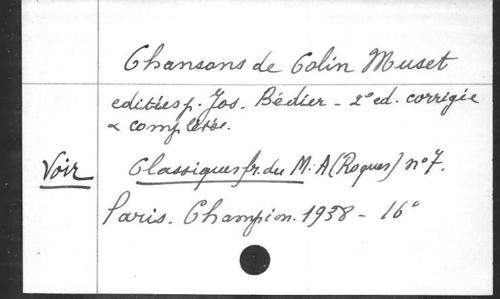 Chansons de Colin Muset
editées p. Jos. Bédier - 2º ed. corrigée
& complétée.
Voir Classiques fr. du M.-A (Roques) nº 7.
Paris. Champion. 1938 - 16º